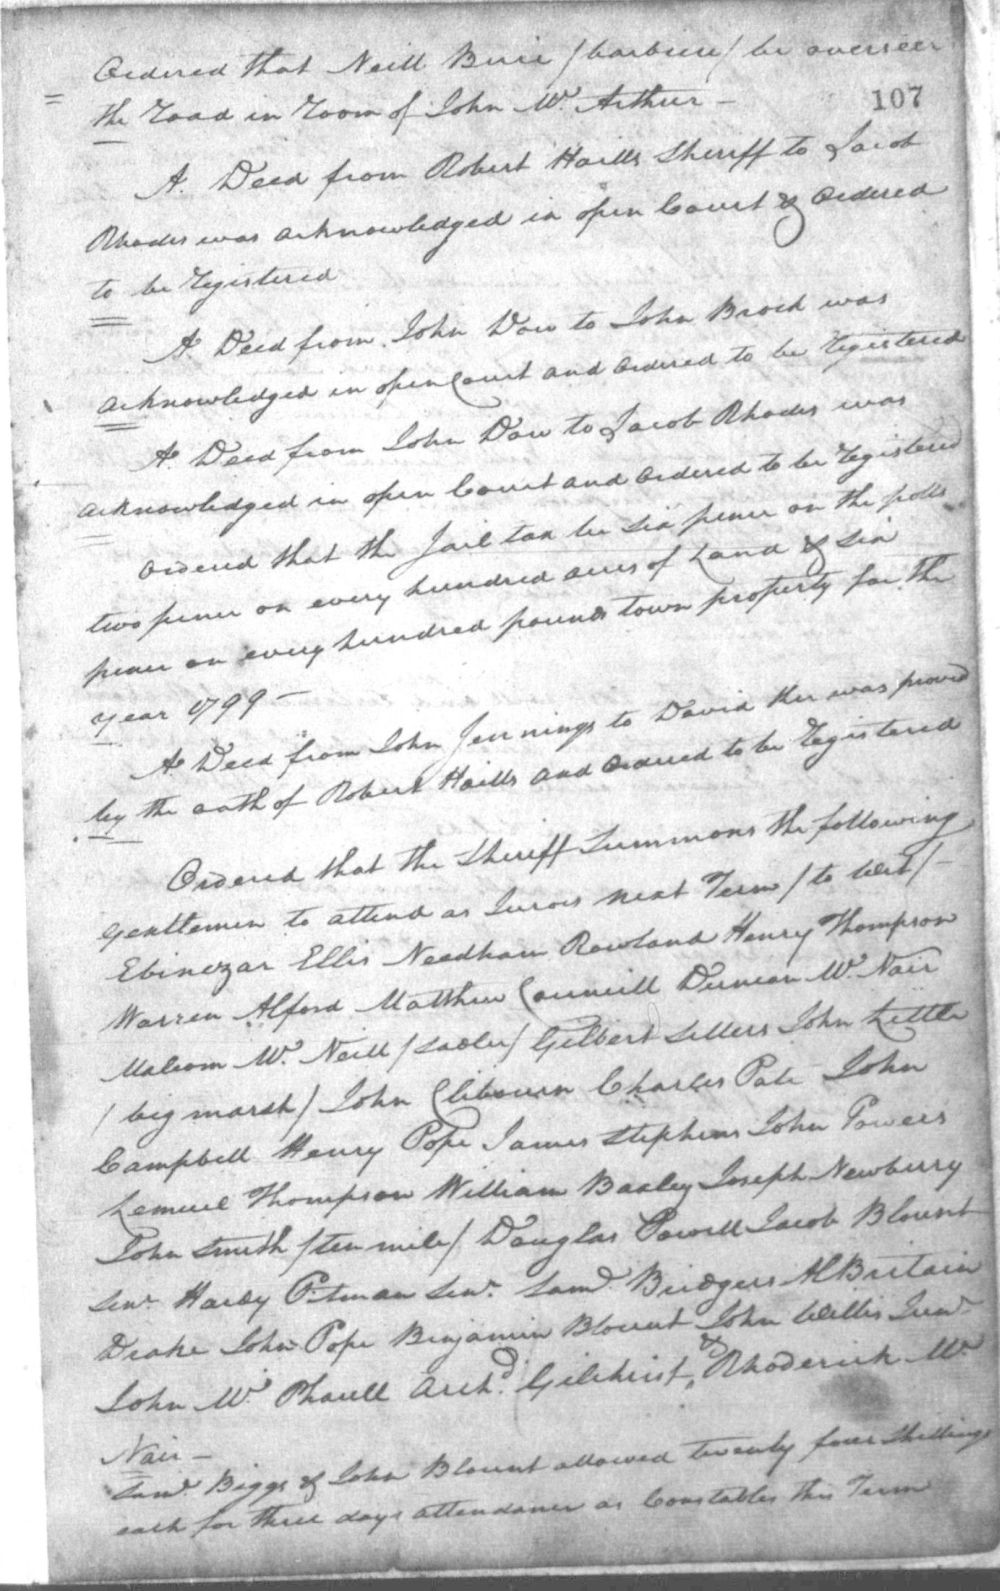 Ordered that Neill Buie / barbicue / be overseer
107
the road in room of John Mc. Arthur -
A. Deed from Robert Haills Sheriff to Jacob
Rhodes was acknowledged in open Court & Ordered
to be registered
A. Deed from John Dow to John Brock was
acknowledged in open Court and Ordered to be registered
A. Deed from John Dow to Jacob Rhodes was
acknowledged in open Court and Ordered to be registered
Ordered that the Jail tax be six pence on the polls
two pence on every hundred acres of Land & six
pence on every hundred pounds town property for the
year 1799 -
A Deed from John Jennings to David Ker was proved
by the oath of Robert Haills and Ordered to be registered
Ordered that the Sheriff Summons the following
gentlemen to attend as Jurors next Term / to wit / -
Ebinezar Ellis Needham Rowland Henry Thompson
Warren Alford Matthew Councill Duncan Mc. Nair
Malcom Mc. Neill / sadler / Gilbert Sellers John Little
/ big marsh / John Clibourn Charles Pate John
Campbell Henry Pope James Stephens John Powers
Lemuel Thompson William Baaley Joseph Newberry
John Smith / ten mile / Douglas Powell Jacob Blount
Senr. Hardy Pitman Senr. Saml. Bridgers Al Britain
Drake John Pope Benjamin Blount John Willis Junr.
John Mc. Phaull Archd. Gilchrist, & Rhoderick Mc
Nair -
Saml. Biggs & John Blount allowed twenty four Shillings
each for three days attendance as Constables this Term